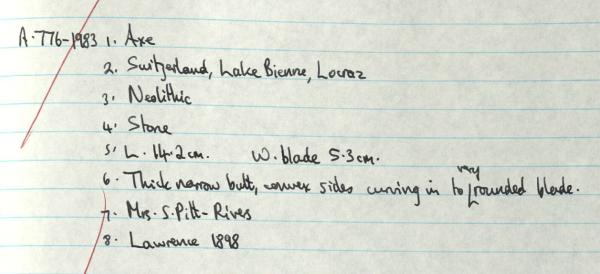 A.776-1983 1. Axe
2. Switzerland, Lake Bienne, Locraz
3. Neolithic
4. Stone
5. L. 14.2cm. W. blade 5.3cm.
6. Thick narrow butt, convex sides curving in to very rounded blade.
7. Mrs. S. Pitt-Rivers
8. Lawrence 1898